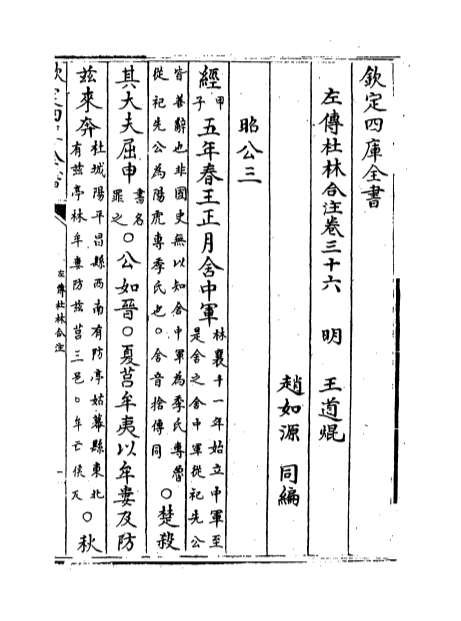 欽定四庫全書
左傳杜林合注卷三十六　明　王道焜
趙如源　同編
昭公三
經
甲子
五年春王正月舍中軍
林襄十一年始立中軍至
是舍之舍中軍從祀先公
皆善辭也非國史無以知舍中軍為季氏專魯
從祀先公為陽虎專季氏也○舍音捨傳同
○楚殺
其大夫屈申
書名
罪之
○公如晉○夏莒牟夷以牟婁及防
茲來奔
杜城陽平昌縣西南有防亭姑幕縣東北
有茲亭林牟婁防茲莒三邑○牟亡侯反
○秋
左傳杜林合注
一